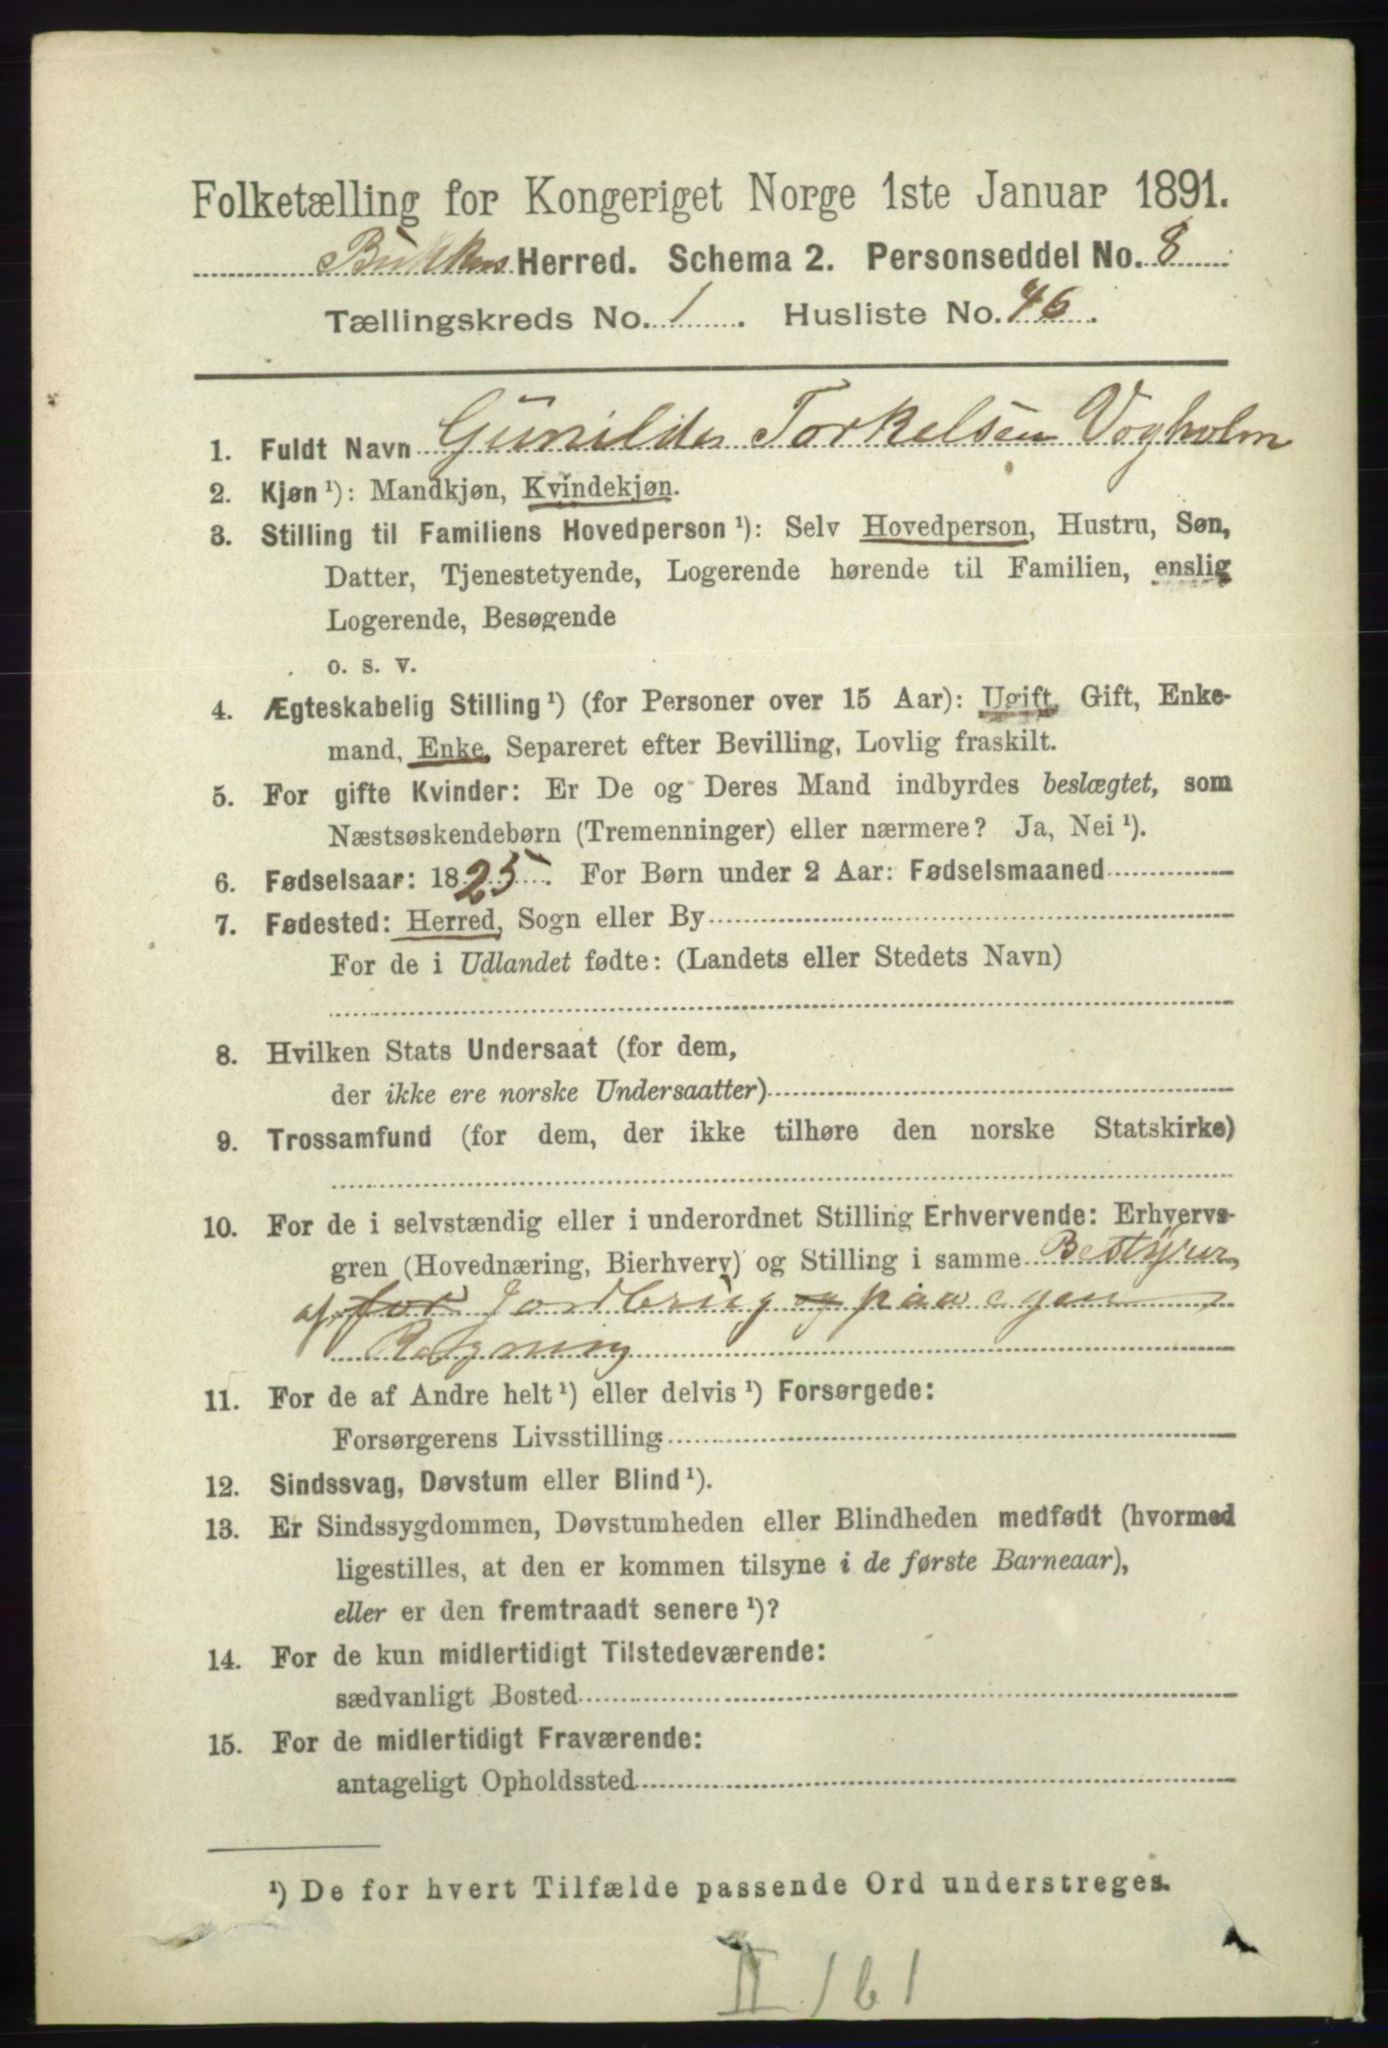 Folketælling for Kongeriget Norge 1ste Januar 1891.
Bukkens Herred. Schema 2. Personseddel No. 8
Tællingskreds No. 1. Husliste No. 46.
1. Fuldt Navn Gunilde Torkelsen Vogholm
2. Kjøn ¹): Mandkjøn, Kvindekjøn.
3. Stilling til Familiens Hovedperson ¹): Selv Hovedperson, Hustru, Søn,
Datter, Tjenestetyende, Logerende hørende til Familien, enslig
Logerende, Besøgende
o. s. v.
4. Ægteskabelig Stilling ¹) (for Personer over 15 Aar): Ugift, Gift, Enke-
mand, Enke, Separeret efter Bevilling, Lovlig fraskilt.
5. For gifte Kvinder: Er De og Deres Mand indbyrdes beslægtet, som
Næstsøskendebørn (Tremenninger) eller nærmere? Ja, Nei ¹).
6. Fødselsaar: 1825. For Børn under 2 Aar: Fødselsmaaned
7. Fødested: Herred, Sogn eller By
For de i Udlandet fødte: (Landets eller Stedets Navn)
8. Hvilken Stats Undersaat (for dem,
der ikke ere norske Undersaatter)
9. Trossamfund (for dem, der ikke tilhøre den norske Statskirke)
10. For de i selvstændig eller i underordnet Stilling Erhvervende: Erhvervs-
gren (Hovednæring, Bierhverv) og Stilling i samme Bestyrer,
af for Jordbrug og paa egen
Regning
11. For de af Andre helt ¹) eller delvis ¹) Forsørgede:
Forsørgerens Livsstilling
12. Sindssvag, Døvstum eller Blind ¹).
13. Er Sindssygdommen, Døvstumheden eller Blindheden medfødt (hvormed
ligestilles, at den er kommen tilsyne i de første Barneaar),
eller er den fremtraadt senere ¹)?
14. For de kun midlertidigt Tilstedeværende:
sædvanligt Bosted
15. For de midlertidigt Fraværende:
antageligt Opholdssted
¹) De for hvert Tilfælde passende Ord understreges.
II 161